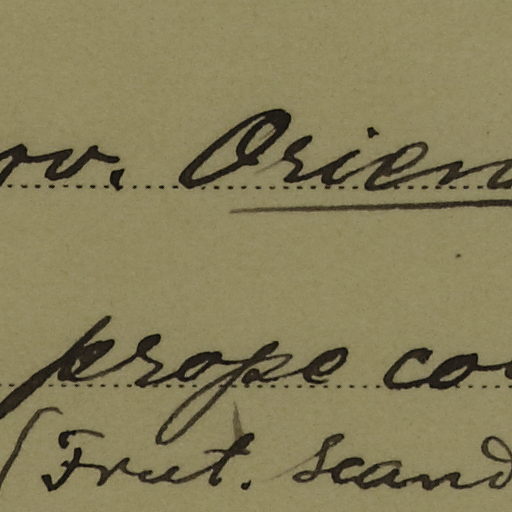 rov. Orien
prope co
(Frut. scand